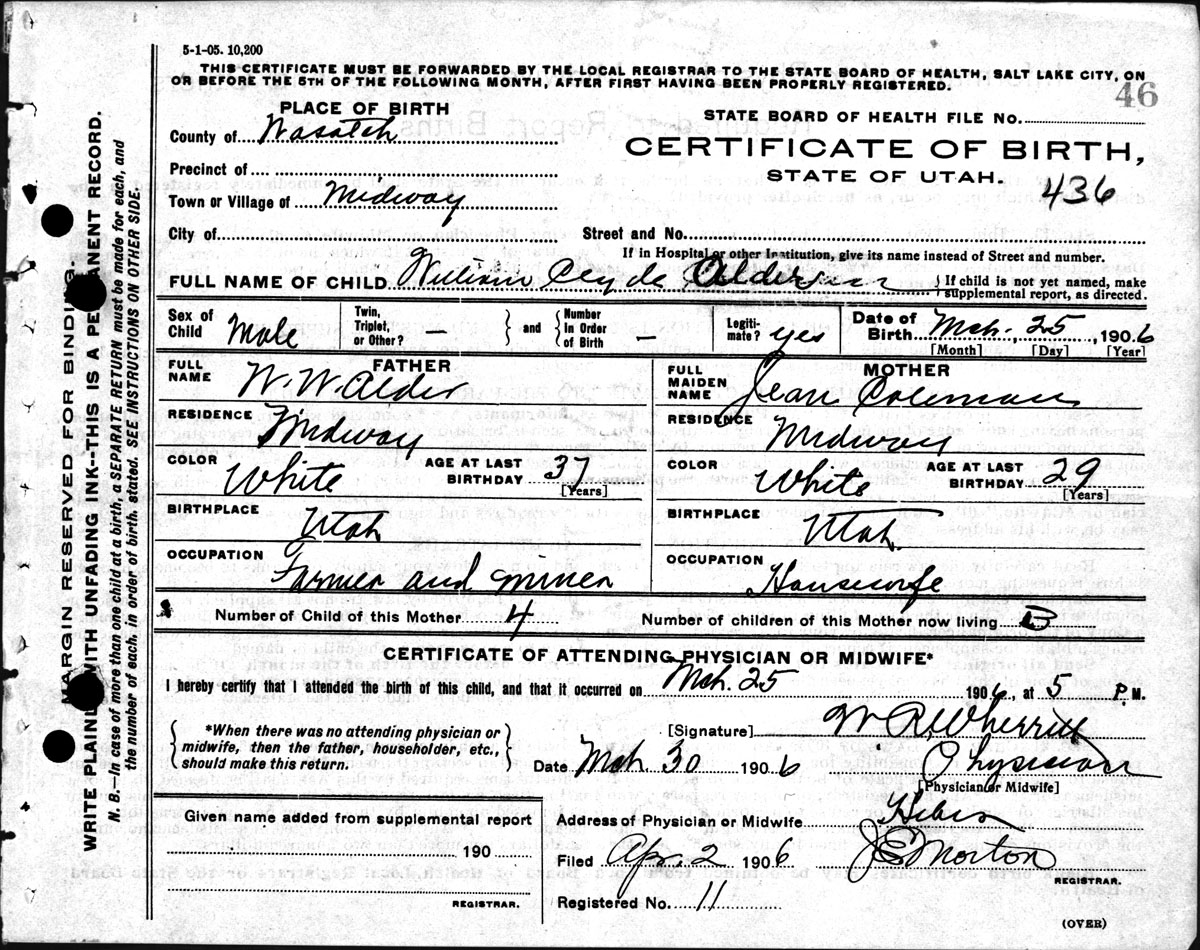 5-1-05. 10,200
THIS CERTIFICATE MUST BE FORWARDED BY THE LOCAL REGISTRAR TO THE STATE BOARD OF HEALTH, SALT LAKE CITY, ON
OR BEFORE THE 5TH OF THE FOLLOWING MONTH, AFTER FIRST HAVING BEEN PROPERLY REGISTERED.
46
PLACE OF BIRTH
County of Wasatch
Precinct of
Town or Village of Midway
City of
STATE BOARD OF HEALTH FILE No.
CERTIFICATE OF BIRTH,
STATE OF UTAH.
436
Street and No.
If in Hospital or other Institution, give its name instead of Street and number.
FULL NAME OF CHILD William Clyde Alder
If child is not yet named, make
supplemental report, as directed.
Sex of
Child Male
Twin,
Triplet,
or Other?
and
Number
In Order
of Birth –
Legiti-
mate? yes
Date of
Birth Mch. 25, 1906
[Month] [Day] [Year]
FATHER
FULL
NAME W. W. Alder
RESIDENCE Midway
COLOR White AGE AT LAST
BIRTHDAY 37
[Years]
BIRTHPLACE Utah
OCCUPATION Farmer and miner
MOTHER
FULL
MAIDEN
NAME Jean Coleman
RESIDENCE Midway
COLOR White AGE AT LAST
BIRTHDAY 29
[Years]
BIRTHPLACE Utah.
OCCUPATION Housewife
Number of Child of this Mother 4 Number of children of this Mother now living
CERTIFICATE OF ATTENDING PHYSICIAN OR MIDWIFE*
I hereby certify that I attended the birth of this child, and that it occurred on Mch. 25 1906, at 5 P. M.
*When there was no attending physician or
midwife, then the father, householder, etc.,
should make this return.
[Signature] W R Wherritt
Date Mch 30 1906 Physician
[Physician or Midwife]
Given name added from supplemental report
190
REGISTRAR.
Address of Physician or Midwife Heber
Filed Apr. 2 1906 J E Morton
REGISTRAR.
Registered No. 11
(OVER)
MARGIN RESERVED FOR BINDING
WRITE PLAINLY WITH UNFADING INK--THIS IS A PERMANENT RECORD.
N. B.—In case of more than one child at a birth, a SEPARATE RETURN must be made for each, and
the number of each, in order of birth, stated. SEE INSTRUCTIONS ON OTHER SIDE.